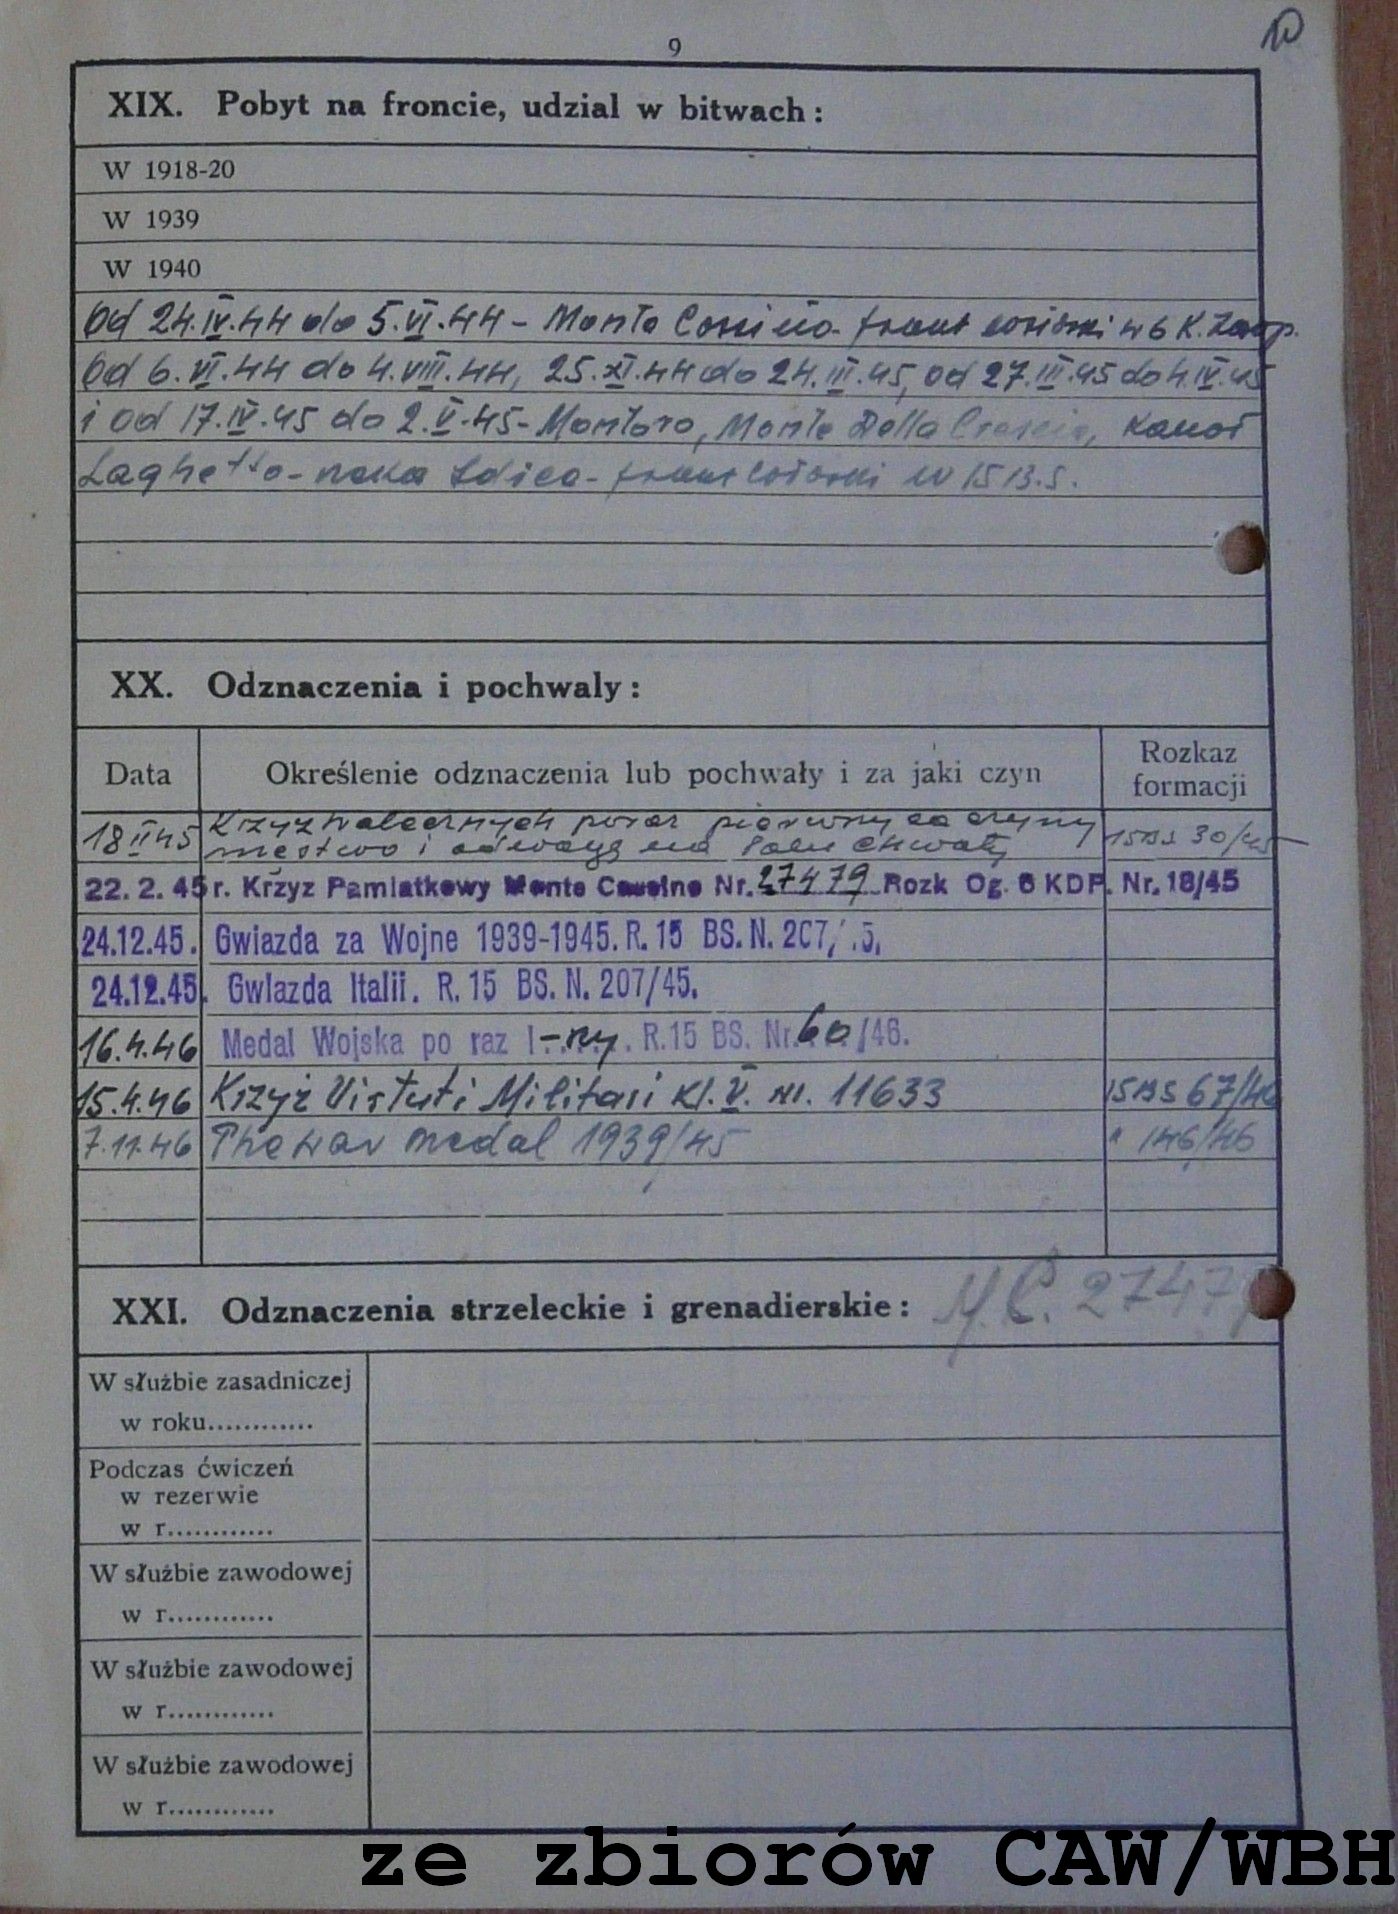 9
10
XIX. Pobyt na froncie, udzial w bitwach :
W 1918-20
W 1939
W 1940
Od 24.IV.44 do 5.VI.44 - Monte Cassino - front włoski w 6 K. Zaop.
Od 6.VI.44 do 4.VIII.44, 25.XI.44 do 24.III.45, od 27.III.45 do 4.IV.45
i od 17.IV.45 do 2.V.45 - Montoro, Monte Della Crescia, Kanał
Laghetto - rzeka Idice - front włoski w 15 B.S.
XX. Odznaczenia i pochwaly :
Data
Określenie odznaczenia lub pochwały i za jaki czyn
Rozkaz
formacji
18 II 45 Krzyż Walecznych po raz pierwszy za czyny
męstwa i odwagę na Polu Chwały 15 BS 30/45
22. 2. 45 r. Krżyz Pamiatkowy Monte Cassino Nr. 27479 Rozk Og. 6 KDP. Nr. 18/45
24.12.45. Gwiazda za Wojne 1939-1945. R. 15 BS. N. 207/ .5.
24.12.45. Gwiazda Italii. R. 15 BS. N. 207/45.
16.4.46 Medal Wojska po raz I-ny. R.15 BS. Nr. 60/46.
15.4.46 Krzyż Virtuti Militari kl. V. nr. 11633 15 BS 67/46
7.11.46 The war medal 1939/45 " 146/46
XXI. Odznaczenia strzeleckie i grenadierskie : M.C. 27479
W służbie zasadniczej
w roku............
Podczas ćwiczeń
w rezerwie
w r............
W służbie zawodowej
w r............
W służbie zawodowej
w r............
W służbie zawodowej
w r............
ze zbiorów CAW/WBH